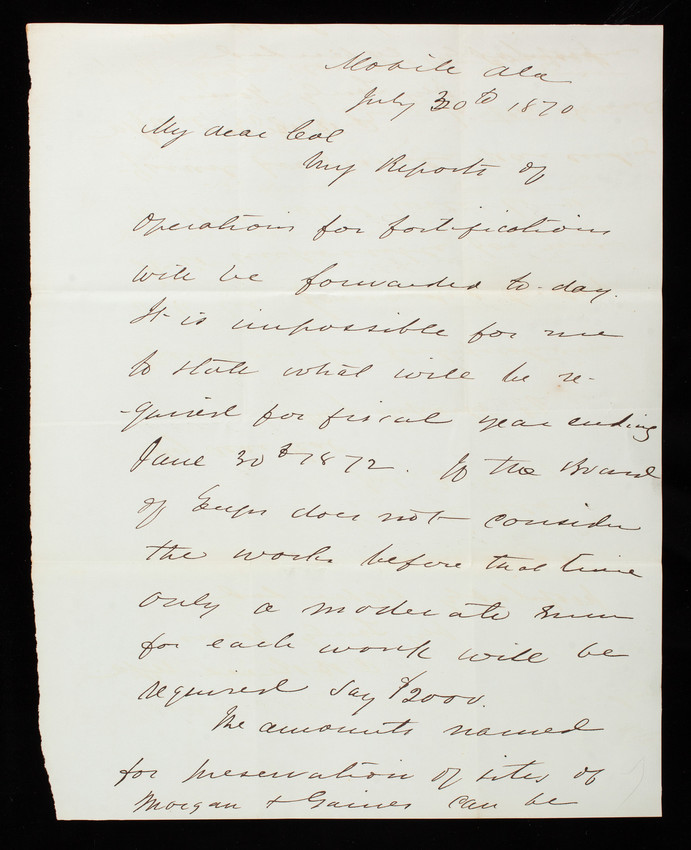 Mobile Ala
July 30th 1870
My dear Col
My Reports of
operations for fortifications
will be forwarded to-day.
It is impossible for me
to state what will be re-
-quired for fiscal year ending
June 30th 1872. If the Board
of Engrs does not consider
the works before that time
only a moderate sum
for each work will be
required say $2000.
The amounts named
for preservation of sites of
Morgan & Gaines can be